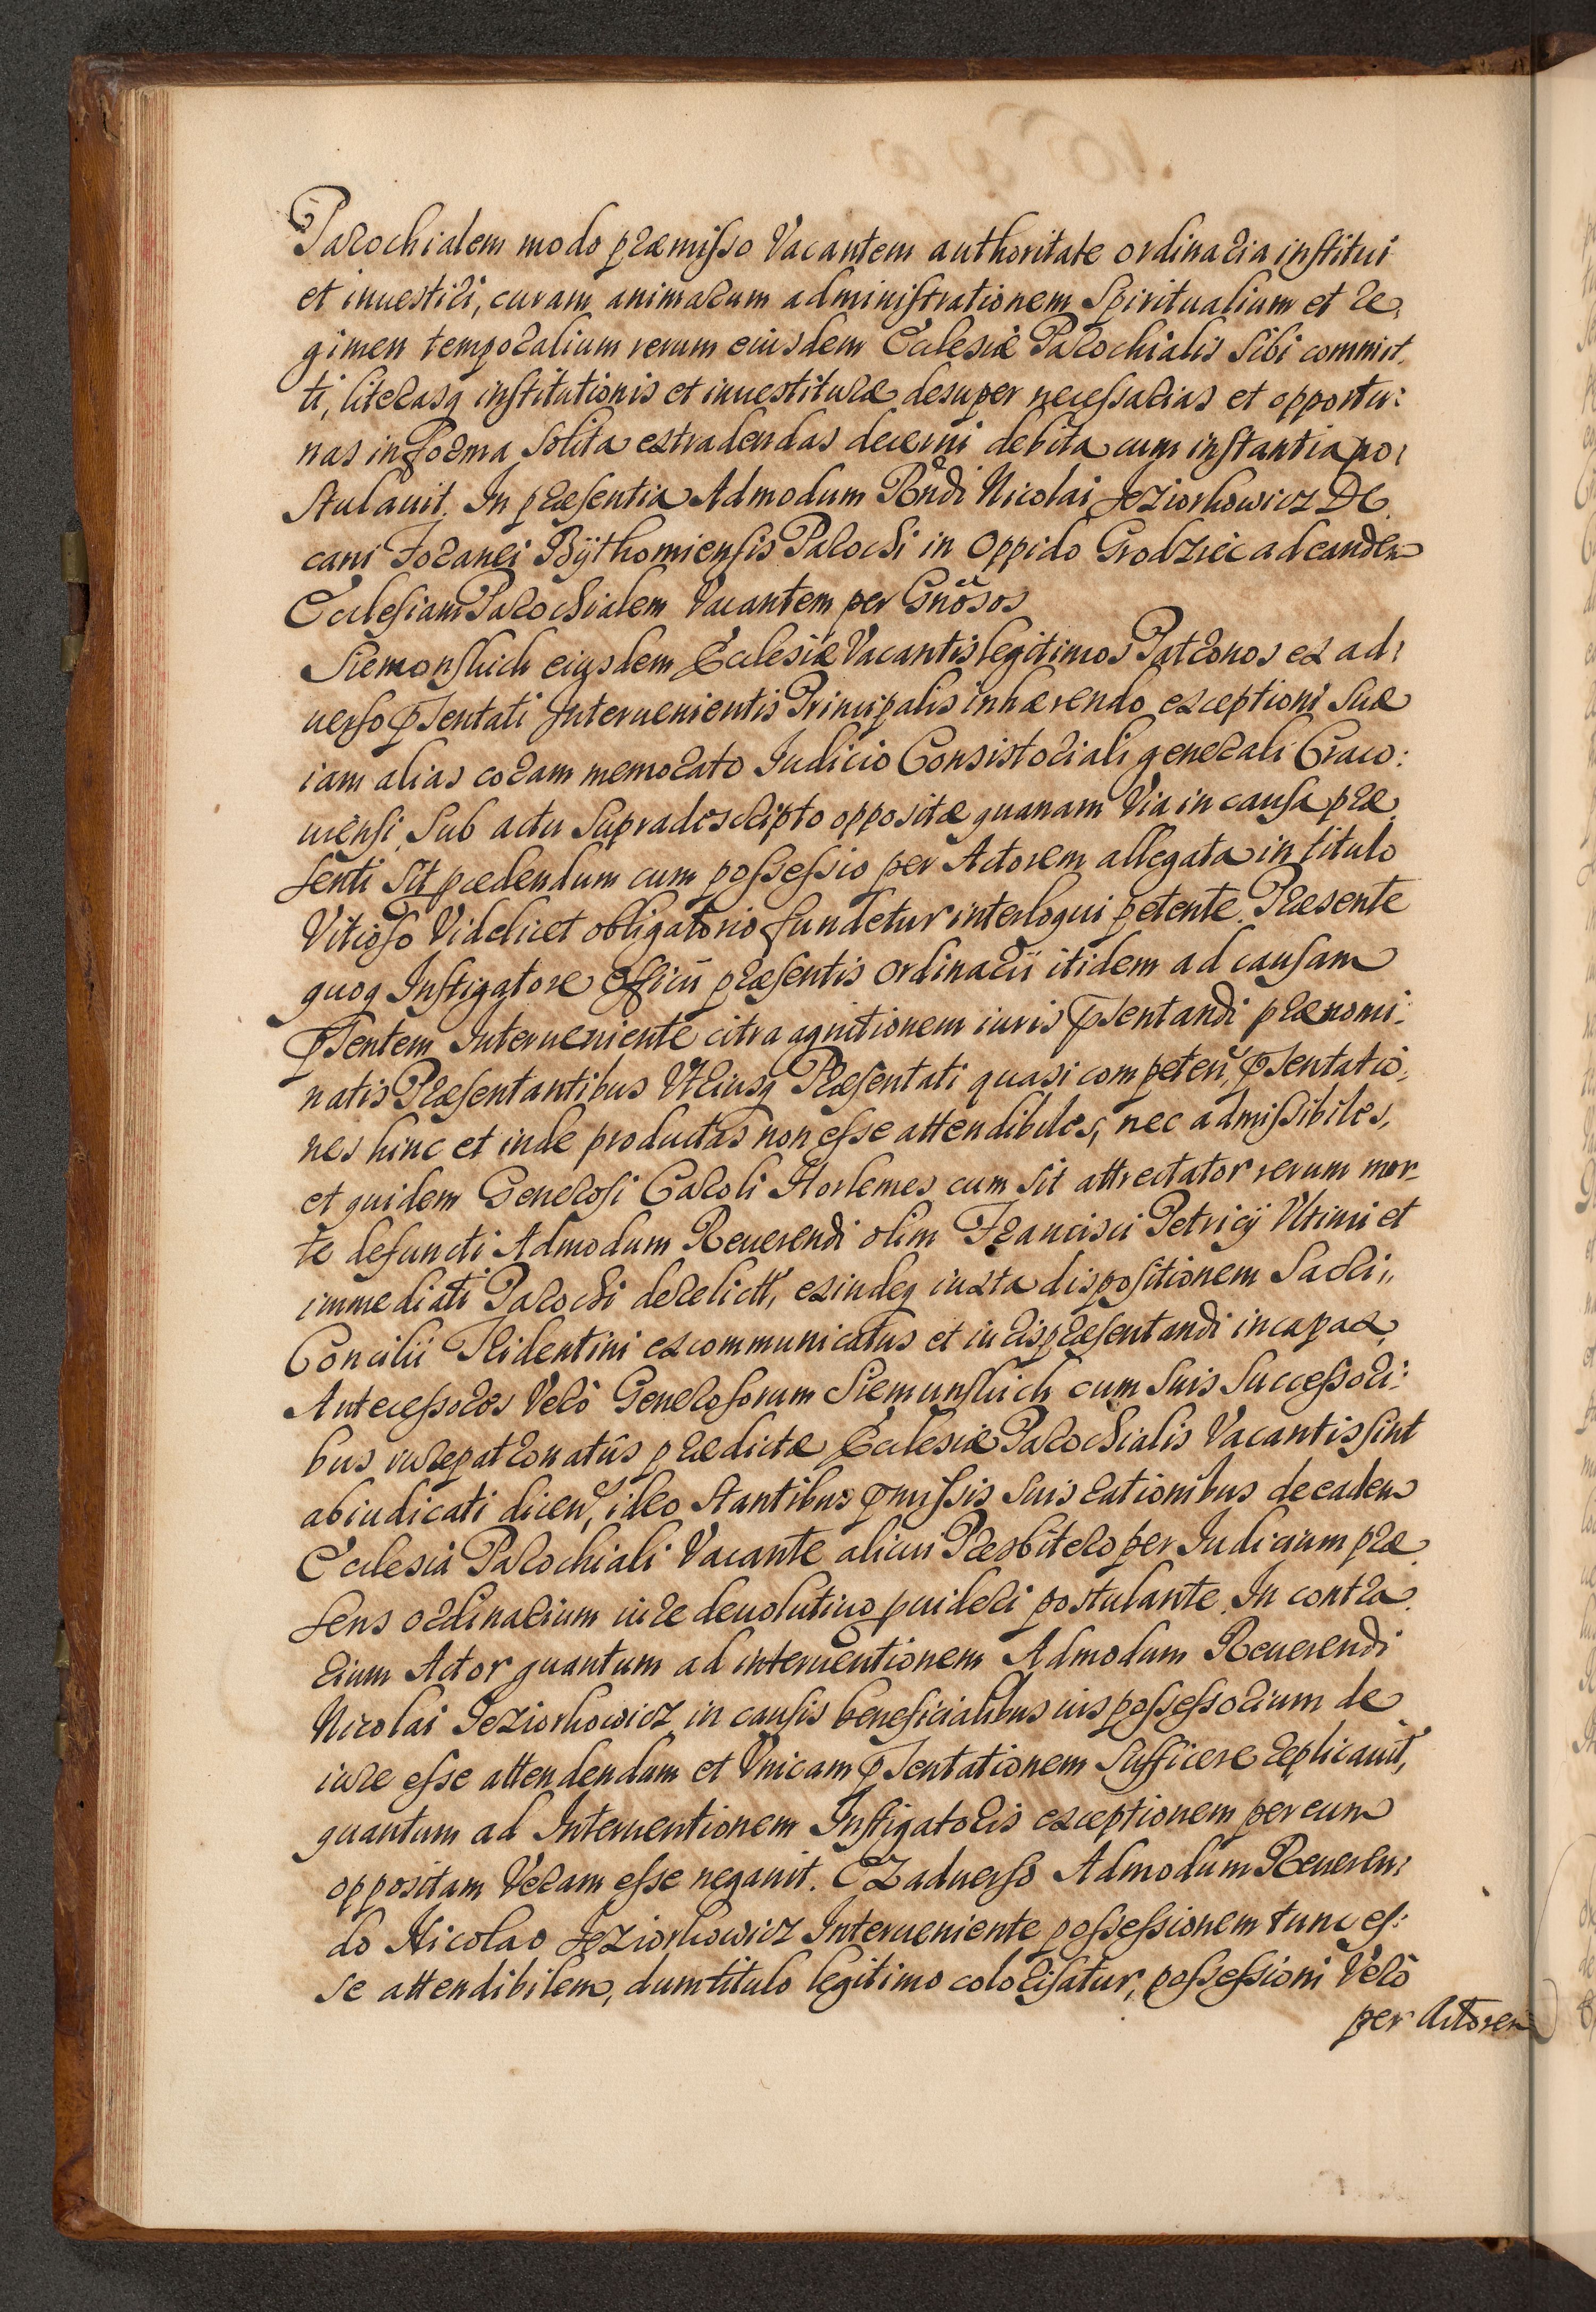 Parochialem modo præmisso Vacantem authoritate ordinaria institui
et inuestiri, curam animarum administrationem Spiritualium et re,
gimen temporalium rerum eiusdem Ecclesiæ Parochialis Sibi commit,
ti, literasq institutionis et inuestituræ desuper necessarias et opportu:
nas in Forma Solita extradendas decerni debita cum instantia po:
stulauit. In præsentia Admodum Rndi Nicolai Jeziorkowicz De,
cani Foranei Bÿthomiensis Parochi in Oppido Grodziec ad eandem
Ecclesiam Parochialem Vacantem per Gnosos
Siemonskich eiusdem Ecclesiæ Vacantis legitimos Patronos ex ad:
uerso psentati Interuenientis Principalis inhærendo exceptioni Suæ
iam alias coram memorato Iudicio Consistoriali generali Craco:
uiensi Sub actu Supradescripto oppositæ quanam Via in causa præ,
senti Sit pcedendum cum possessio per Actorem allegata in titulo
Vitioso Videlicet obligatorio fundetur interloqui petente. Præsente
quoq Instigatore Officii præsentis Ordinarii itidem ad causam
psentem Interueniente citra agnitionem iuris psentandi prænomi:
natis Præsentantibus Vtriusq Præsentati quasi competen, psentatio,
nes hinc et inde productas non esse attendibiles, nec admissibiles,
et quidem Generosi Caroli Horlemes cum Sit attrectator rerum mor-
te defuncti Admodum Reuerendi olim Francisci Petricij Vltimi et
immediati Parochi derelictt, exindeq iuxta dispositionem Sacri,,
Concilii Tridentini excommunicatus et iuris præsentandi incapax,
Antecessores Verò Generosorum Siemunskich cum Suis Successori:
bus iure patronatûs prædictæ Ecclesiæ Parochialis Vacantis sint
abiudicati dicen, ideo Stantibus pmissis Suis rationibus de eadem
Ecclesia Parochiali Vacante alicui Præsbitero per Iudicium præ,
sens ordinarium iure deuolutiuo puideri postulante. In contra,
rium Actor quantum ad interuentionem Admodum Reuerendi
Nicolai Jeziorkowicz in causis beneficialibus ius possessorium de
iure esse attendendum et Vnicam psentationem Sufficere replicauit,
quantum ad Interuentionem Instigatoris exceptionem per eum
oppositam Veram esse negauit. Ex aduerso Admodum Reueren:
do Nicolao Jeziorkowicz Interueniente possessionem tunc es:
se attendibilem, dum titulo legitimo colorisatur, possessioni Verò
per Actorem